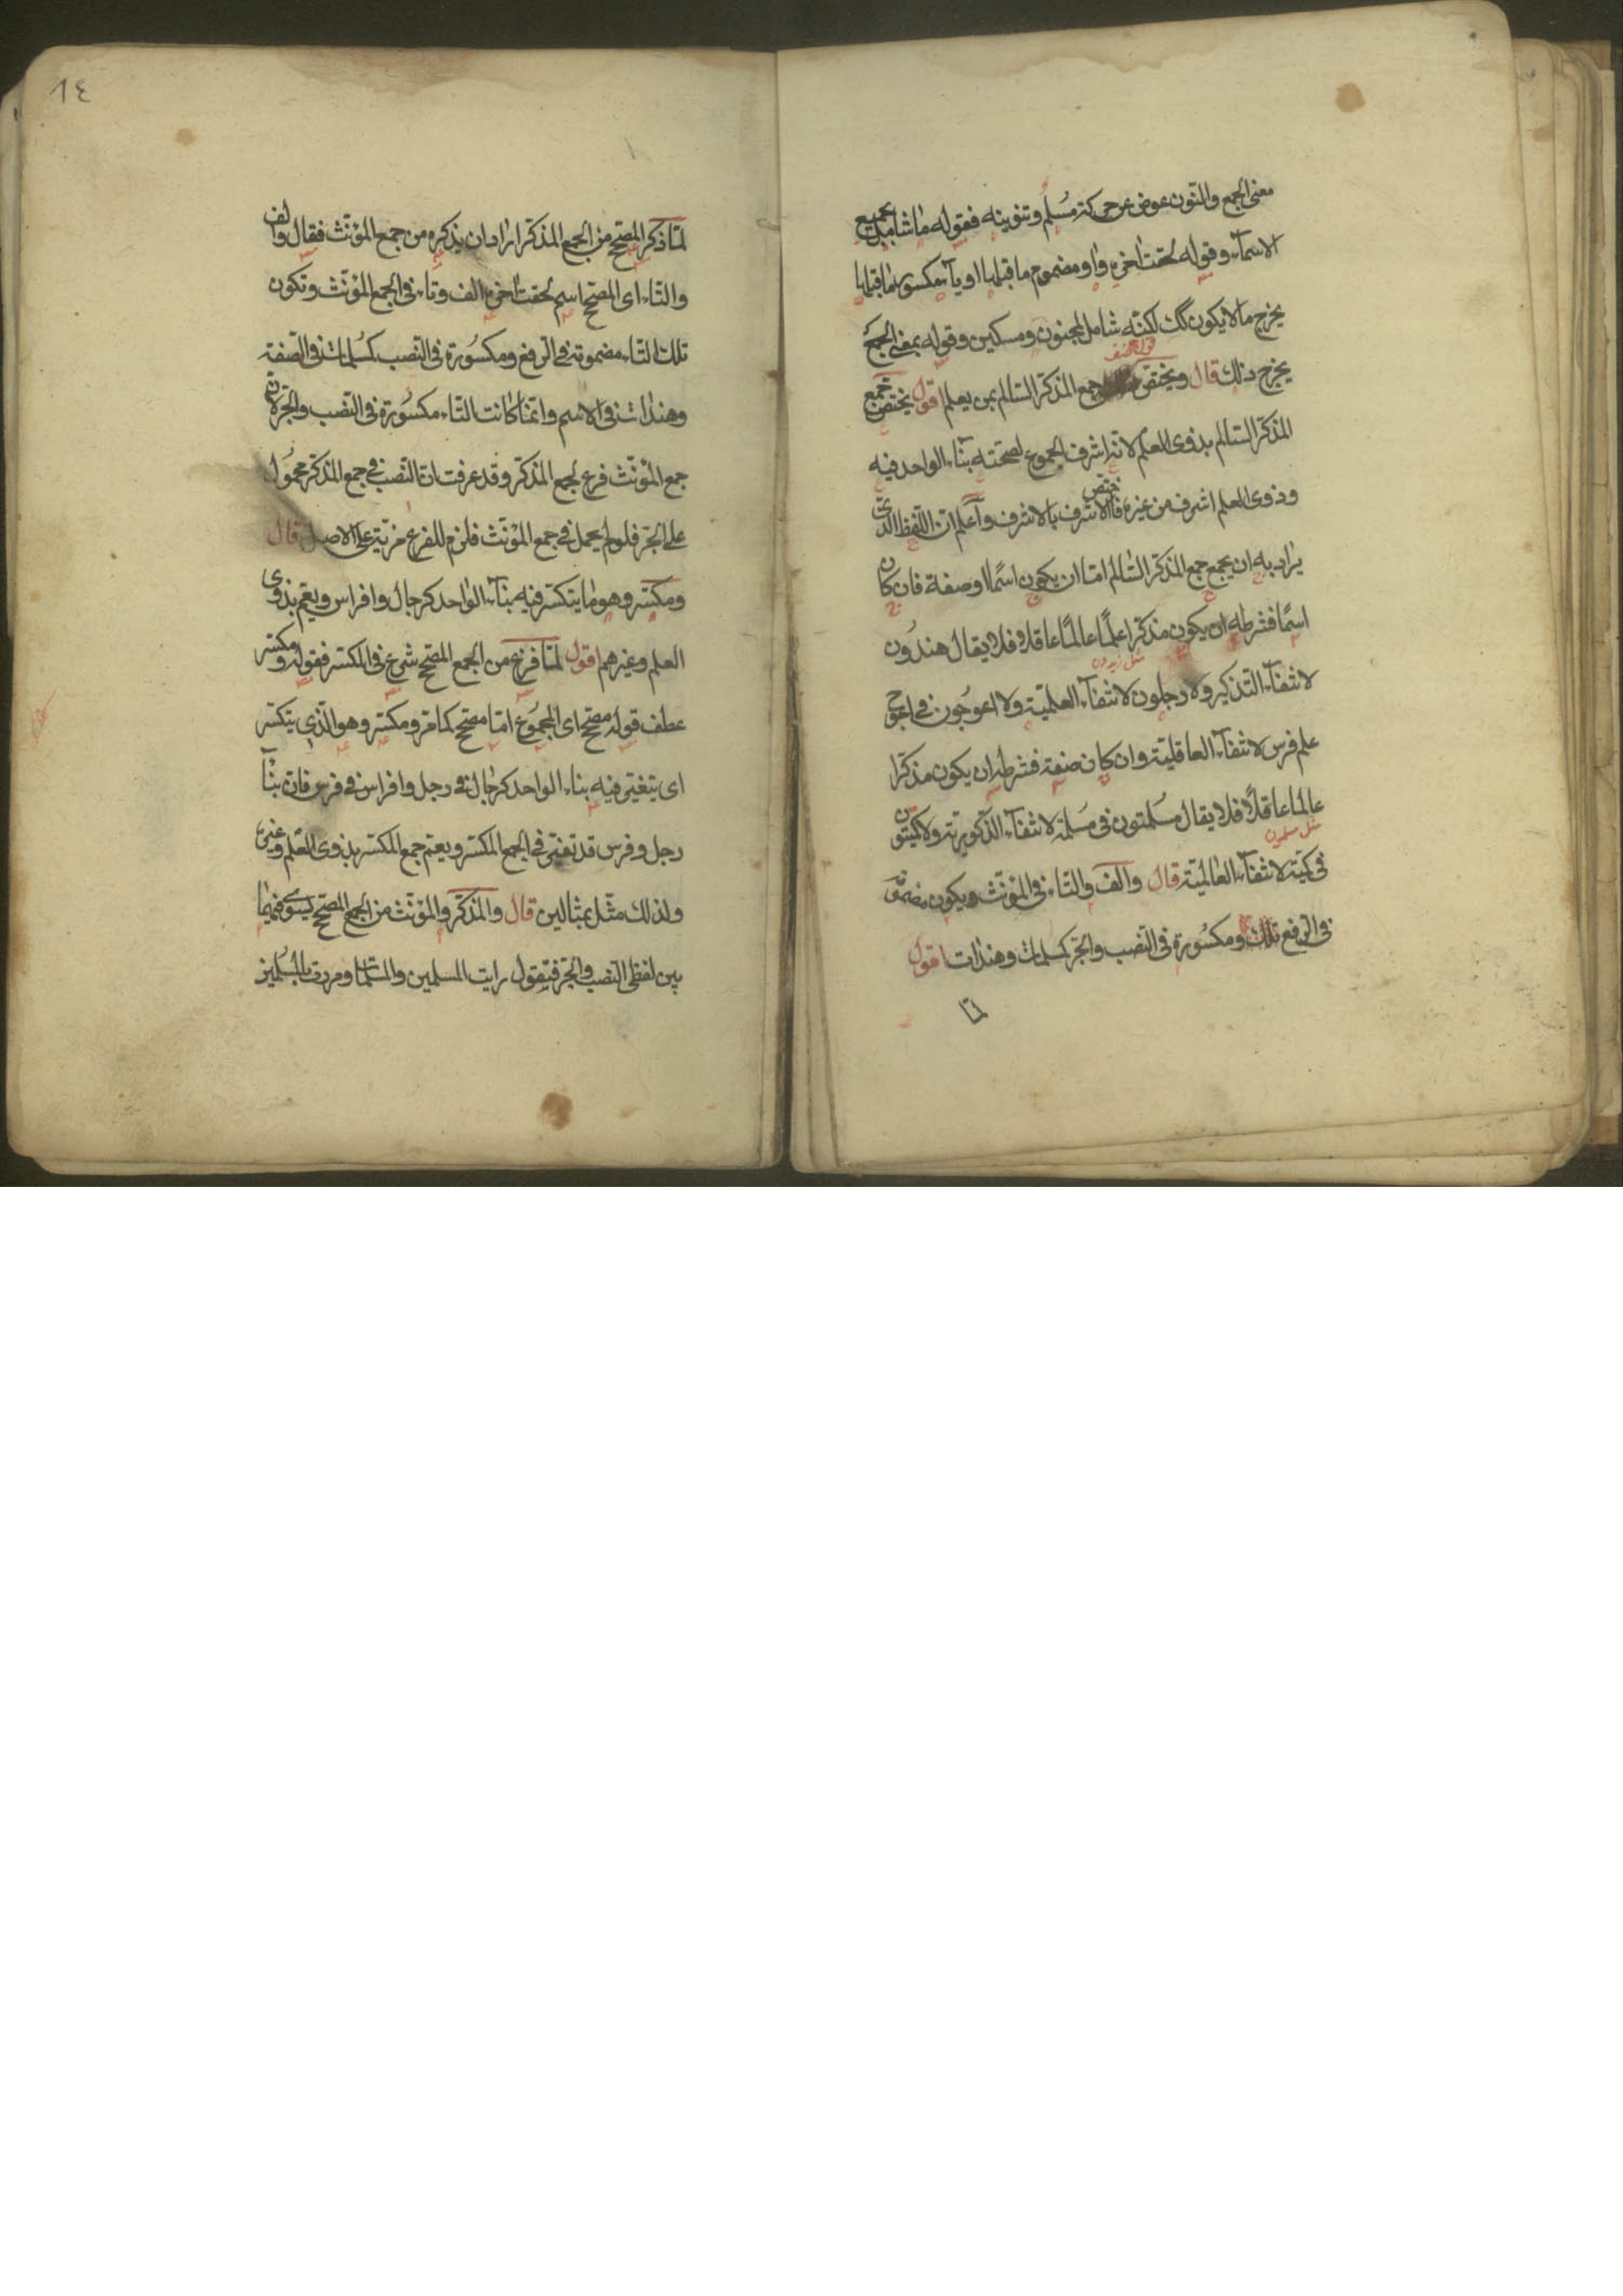 معنى الجمع والنون عوض عن حركة مسلم وتنوينه فقوله ما شامل بجميع
الاسمآء وقوله لحقت اخره واو مضموم ما قبلها او يآء مكسور ما قبلها
يخرج ما لا يكون كك لكنّه شامل لمجنون ومسكين وقوله بمعنى الجمع
يخرج ذلك قال ويختص جمع المذكر السالم بمن يعلم اقول يختص جمع
المذكر السالم بذوى العلم لانه اشرف الجموع لصحته بنآء الواحد فيه
وذوى العلم اشرف من غيره فالاشرف بالاشرف واعلم ان اللفظ الذى
اختص
يراد به ان يجمع جمع المذكر السالم امّا ان يكون اسمًا او صفة فان كان
اسمًا فشرطه ان يكون مذكرا علمًا عالمًا عاقلا فلا يقال هندون
مثل زيدون
لانتفآء التذكير ولا رجلون لانتفآء العلميّة ولا اعوجون فى اعوج
علم فرس لانتفآء العاقليّة وان كان صفة فشرطه ان يكون مذكرا
عالما عاقلًا فلا يقال مسلمتون فى مسلمة لانتفآء الذكوريّة ولا كميتون
مثل مسلمون
فى كميت لانتفآء العالميّة قال والف والتاء فى المؤنّث ويكون مضمومة
فى الرفع تلك ومكسورة فى النصب والجر كمسلمات وهندات اقول
لمّا
١٤
لمّا ذكر المصحّح من الجمع المذكر اراد ان يذكره من جمع المؤنّث فقال والف
والتاء اى المصحّح اسم لحقت اخره الف وتاء فى الجمع المؤنّث وتكون
تلك التاء مضمومة فى الرفع ومكسورة فى النصب كمسلمات فى الصفة
وهندات فى الاسم وانما كانت التاء مكسورة فى النصب والجر لان
جمع المؤنّث فرع لجمع المذكر وقد عرفت ان النصب فى جمع المذكر محمول
على الجر فلو لم يحمل فى جمع المؤنّث فلزم للفرع مزيّة على الاصل قال
ومكسّر وهو ما يتكسّر فيه بنآء الواحد كرجال وافراس ويعم بذوى
العلم وغيرهم اقول لمّا فرغ من الجمع المصحّح شرع فى المكسّر فقوله ومكسّر
عطف قوله مصحّح اى المجموع امّا مصحّح كما مر ومكسّر وهو الذى يتكسّر
اى يتغيّر فيه بناء الواحد كرجال فى رجل وافراس فى فرس فان بنآء
رجل وفرس قد تغيّر فى الجمع المكسّر ويعم جمع المكسّر بذوى العلم وغيره
ولذلك مثّل بمثالين قال والمذكّر والمؤنّث من الجمع المصحّح يسوى فيهما
بين لفظى النصب والجر فيقول رايت المسلمين والمسلمات ومررت بالمسلمين